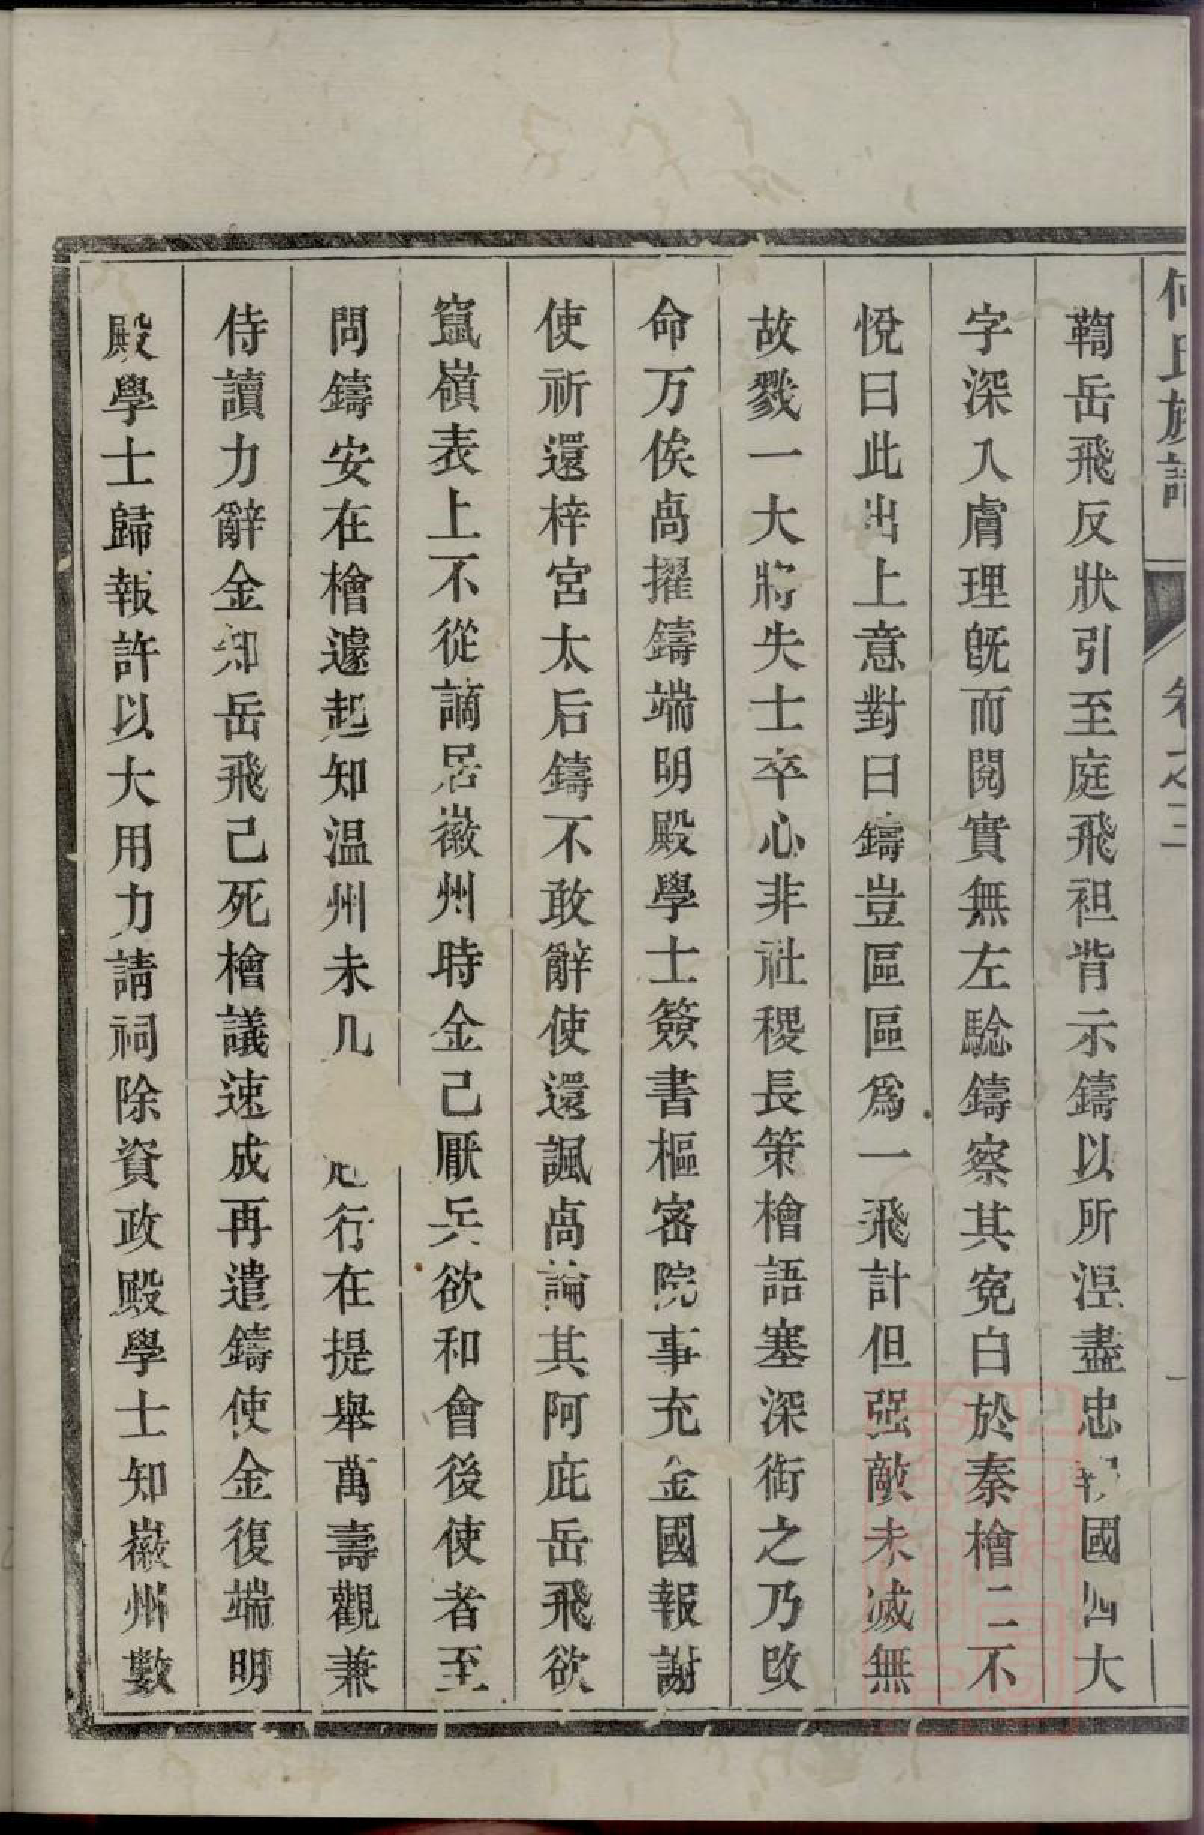 何氏族譜 卷之三
鞫岳飛反狀引至庭飛袒背示鑄以所湼盡忠報國四大
字深入膚理旣而閱實無左驗鑄察其寃白於秦檜二不
悅曰此出上意對曰鑄豈區區爲一飛計但强敵未滅無
故戮一大將失士卒心非社稷長策檜語塞深銜之乃改
命万俟卨擢鑄端明殿學士簽書樞宻院事充金國報謝
使祈還梓宮太后鑄不敢辭使還諷卨論其阿庇岳飛欲
竄嶺表上不從謫居徽州時金己厭兵欲和會後使者至
問鑄安在檜遽起知温州未几行在提舉萬壽觀兼
侍讀力辭金知岳飛己死檜議速成再遣鑄使金復端明
殿學士歸報許以大用力請祠除資政殿學士知徽州數